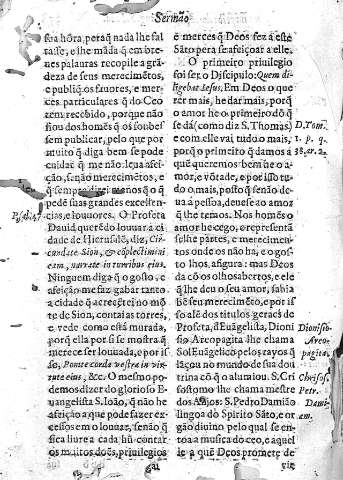 Sermão
sua hõra, peraq̃ nada lhe fal
tasse, e lhe mãda q̃ em bre-
nes palauras recopile a grã-
deza de seus merecimẽtos,
e publiq̃ os fauores, e mer-
ces particulares q̃ do Ceo
tem recebido, porque não
fiou dos homẽs q̃ os soubes
sem publicar, pelo que por
muito q̃ diga bem se pode
cuidar q̃ me não leua afei-
ção, senão merecimẽtos, e
q̃ sempre direi menos q̃ o q̃
pede suas grandes excellẽ-
cias, e louuores. O Profeta
Dauid querẽdo louuar a ci
dade de Hierusalẽ, diz, Cir
cundate Sion, & cõplectimini
eam, narrate in turribus eius.
Ninguem diga q̃ o gosto, e
afeição me faz gabar tanto
a cidade q̃ acrecẽtei no mõ
te de Sion, contai as torres,
e vede como està murada,
porq̃ ella por si se mostra q̃
merece ser louuada, e por is
so, Ponite corda vestra in vir-
tute eius, &c. O mesmo po-
demos dizer do glorioso E-
uangelista S. Ioão, q̃ não he
afeição a que pode fazer ex-
cessos em o louuar, senão q̃
fica liure a cada hũ contar
os muitos dões, priuilegios
e merces q̃ Deos fez a este
Sãto pera se afeiçoar a elle.
O primeiro priuilegio
foi ser o Discipulo: Quem di-
ligebat Iesus. Em Deos o que
rer mais, he dar mais, porq̃
o amor he o primeiro dõ q̃
se dà (como diz S. Thomas)
e com elle vai tudo o mais,
porq̃ o primeiro q̃ damos a
que queremos bem he o a-
mor, e võtade, e por isso tu-
do o mais, posto q̃ senão de-
ua â pessoa, deuese ao amor
q̃ lhe temos. Nos homẽs o
amor he cego, e representã
selhe partes, e merecimen-
tos onde os não ha, e o gos-
to lhos afigura: mas Deos
dà cõ os olhos abertos, e ele
q̃ lhe deu o seu amor, sabia
bẽ seu merecimẽto, e por is
so alẽ dos titulos geraes de
Profeta, & Euãgelista, Dioni
sio Areopagita lhe chama
Sol Euangelico pelos rayos q̃
lãçou no mundo de sua dou
trina cõ q̃ o alumiou. S. Cri
sostomo lhe chama mestre
dos Anjos: S. Pedro Damião
lingoa do Spirito Sãto, e or-
gão diuino pelo qual se ent
oa a musica do ceo, e aquel
le a quẽ Deos promete de
D. Tom.
1. p. q.
38. ar. 2.
Dionisio
Areo-
pagita.
Chrisos.
Petr.
Dami-
am.
Psal. 47
gal